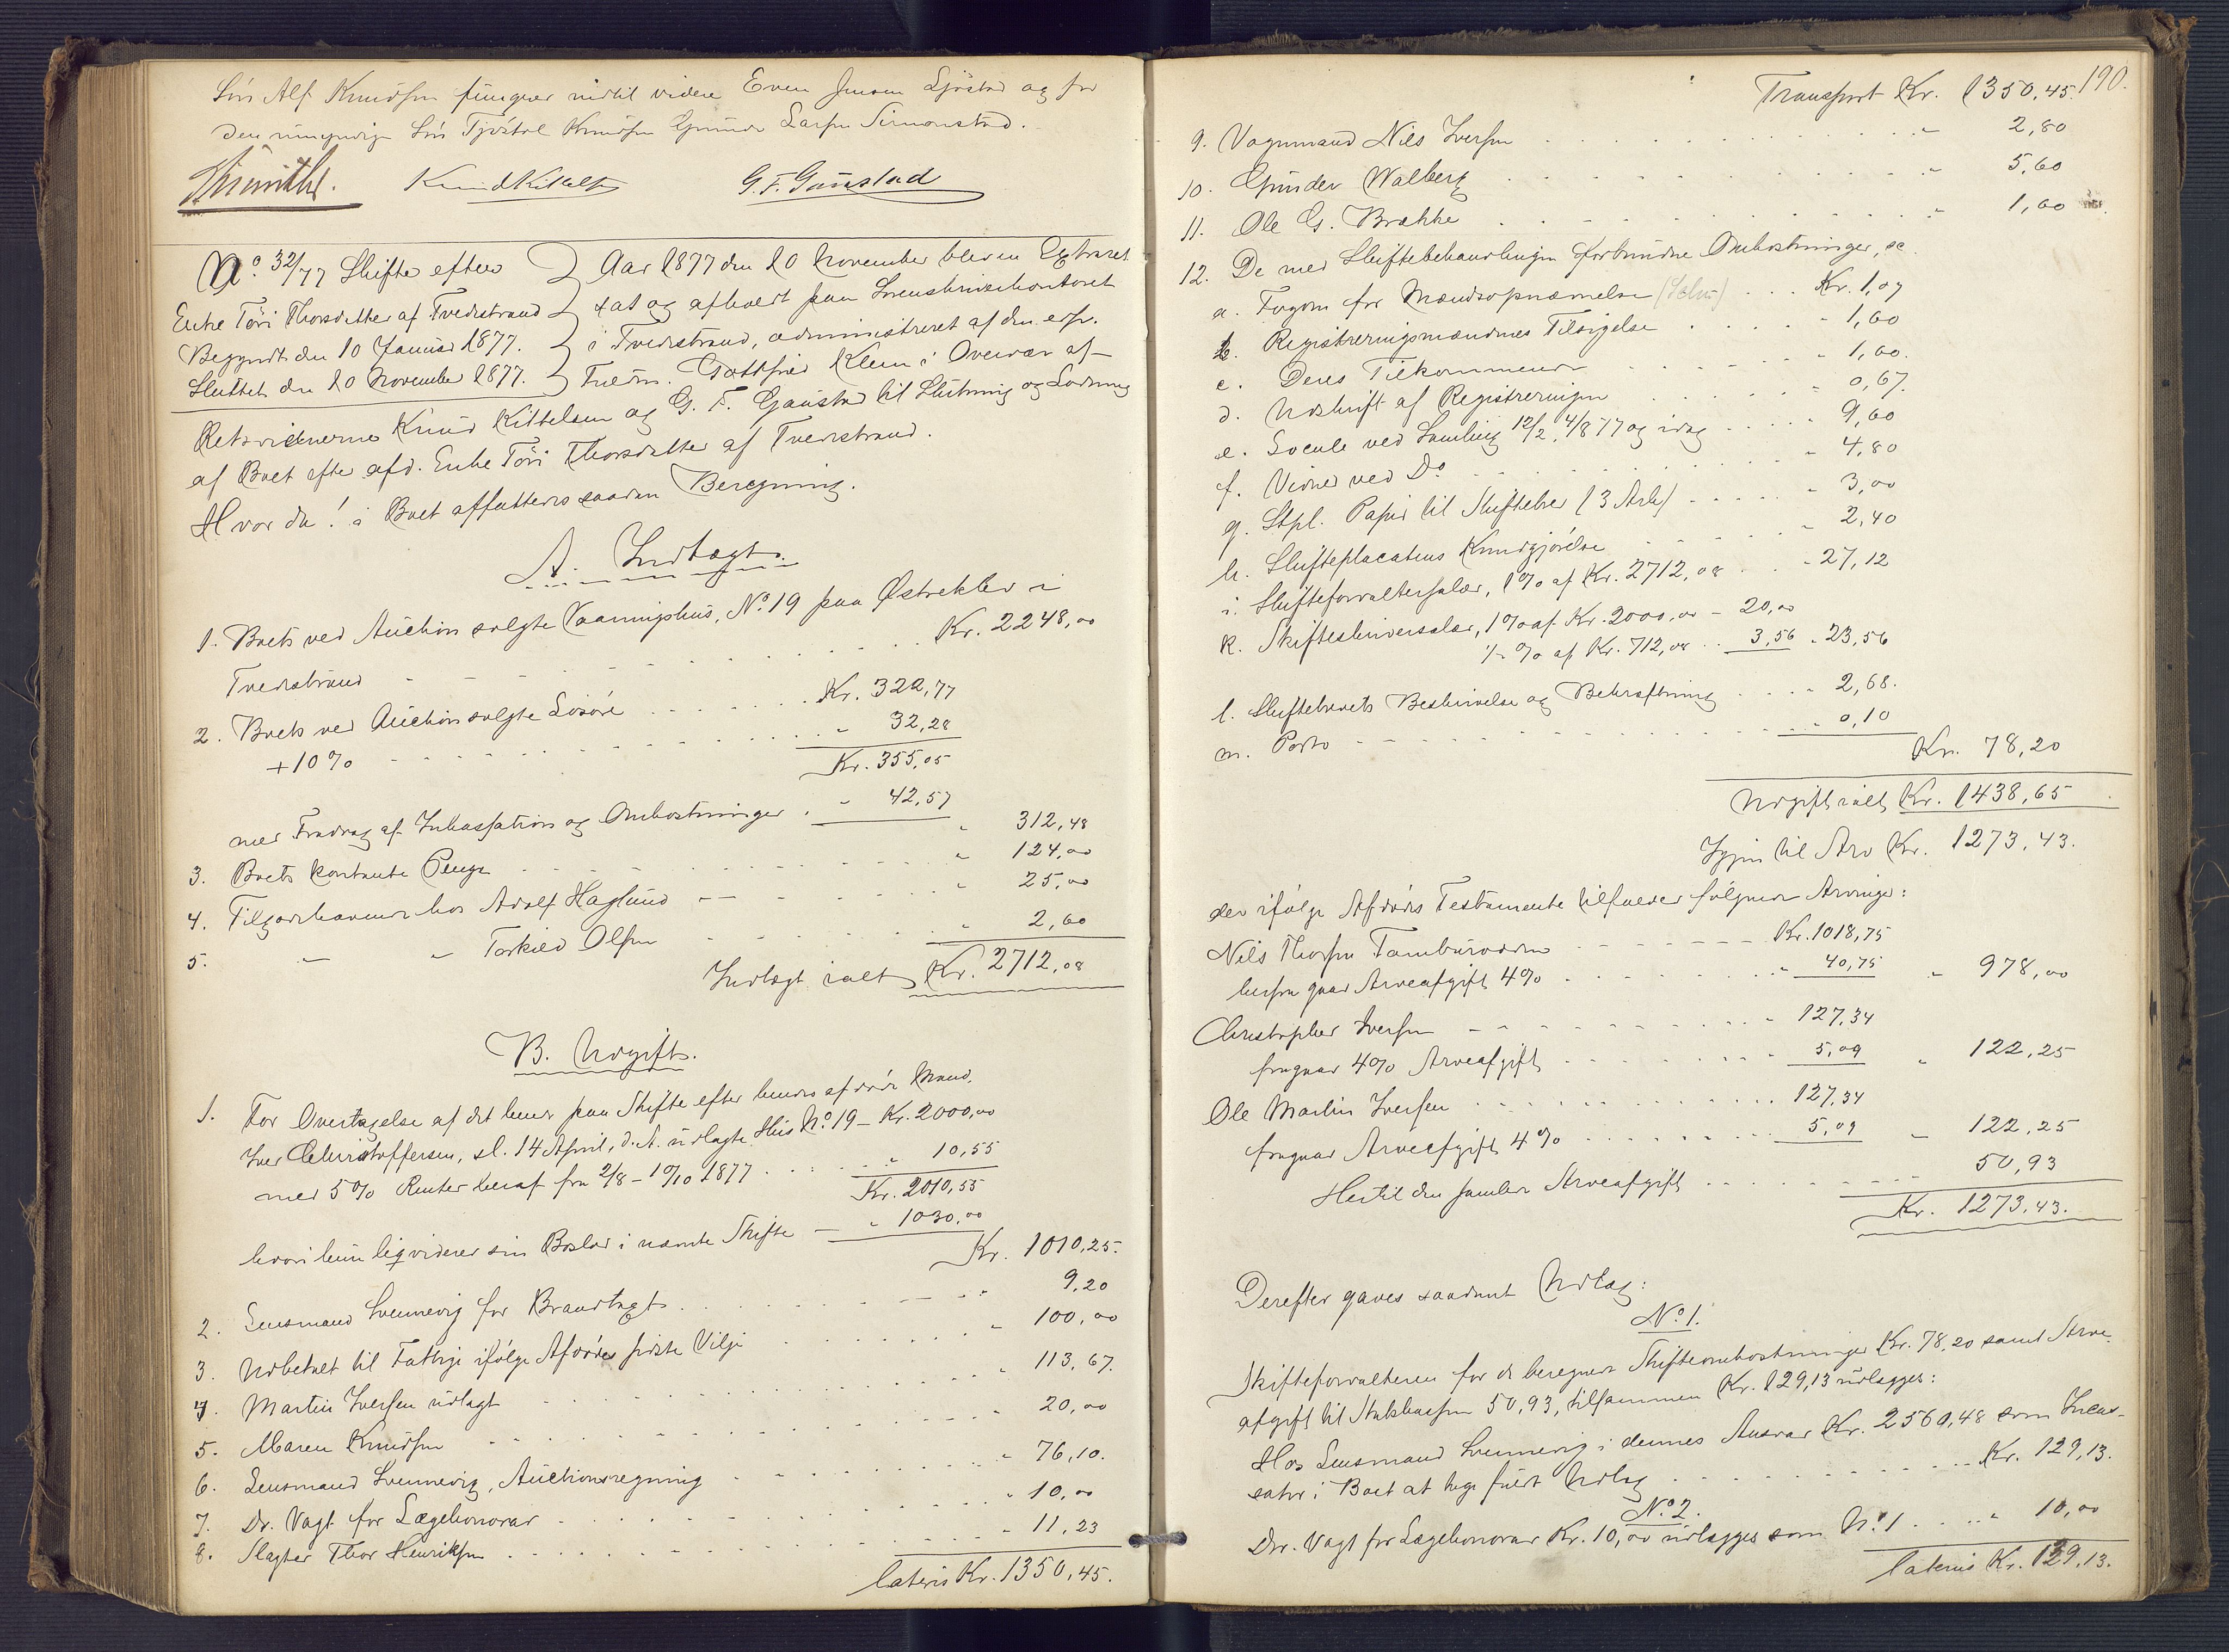 Søn Alf Knudsen fungerer indtil videre Even Jensen Sjøstad og for
den umyndige Søn Tjøstol Knudsen Gunder Larsen Simonstad.
Knud Kittelsen G. F. Gaustad
No. 32/77 Skifte efter
Enke Töri Thorsdatter af Tvedestrand
Begyndt den 10 Januar 1877.
Sluttet den 10 November 1877.
Aar 1877 den 10 November blev en Extraret
sat og afholdt paa Sorenskriverkontoret
i Tvedestrand, administreret af den
Fuldm. Gottfried Klem i Overvær af
Retsvidnerne Knud Kittelsen og G. F. Gaustad til Slutning og Lodning
af Boet efter afd. Enke Töri Thorsdatter af Tvedestrand.
Hvor da! i Boet affattedes saadan Beregning.
A. Indtægt.
1. Boets ved Auction solgte Vaaningshus, No. 19 paa Østreklev i
Tvedestrand - - - Kr. 2248,00
2. Boets ved Auction solgte Løsøre . . . Kr. 322,77
+ 10% - - - " 32,28
Kr. 355,05
med Fradrag af Inkassation og Omkostninger . " 42,57 " 312,48
3. Boets kontante Penge - - - " 124,00
4. Tilgodehavende hos Adolf Haglund - - - " 25,00
5. " " Torkild Olsen - - - " 2,60
Indtægt ialt Kr. 2712,08
B. Udgift.
1. For Overtagelse af det hende paa Skifte efter hendes afdøde Mand,
Iver Christoffersen, sl. 14 April, d. A. udlagte Hus No. 19 - Kr. 2000,00
med 5% Renter heraf fra 2/8 - 10/10 1877 . . . " 10,55
Kr. 2010,55
hvori hun liqviderer sin Boslod i nævnte Skifte - " 1030,00
Kr. 1010,25.
2. Lensmand Svennevig for Brandtagt . . . " 9,20
3. Udbetalt til Fattige ifølge Afdødes sidste Vilje . . . " 100,00
4. Martin Iversen udlagt . . . " 113,67.
5. Maren Knudsen . . . " 20,00
6. Lensmand Svennevig, Auctionsregning . . . " 76,10.
7. Dr. Vagt for Lægehonorar . . . " 10,00
8. Slagter Thor Henriksen . . . " 11,23
lateris Kr. 1350,45.
190.
Transport Kr. 1350,45.
9. Vognmand Nils Iversen . . . " 2,80
10. Gunder Walberg . . . " 5,60
11. Ole G. Brække . . . " 1,60
12. De med Skiftebehandlingen forbundne Omkostninger, sc.
a. Fogden for Mændsopnævnelse . . . Kr. 1,07
b. Registreringsmændenes Tilsigelse . . . " 1,60
c. Deres Tilkommende . . . " 1,60.
d. Udskrift af Registreringen . . . " 0,67.
e. Locale ved Samling 12/2, 4/8 77 og idag . . . " 9,60
f. Vidner ved Do . . . " 4,80
g. Stpl. Papir til Skiftebrev (3 Ark) . . . " 3,00
h. Skifteplacatens Kundgjørelse . . . " 2,40
i. Skifteforvaltersalær, 1% af Kr. 2712,08 . . . " 27,12
k. Skifteskriversalær, 1% af Kr. 2000,00 - 20,00
½ % af Kr. 712,08 . . 3,56 . 23,56
l. Skiftebrevets Beskrivelse og Bekræftning . . . " 2,68.
m. Porto - - - " 0,10
Kr. 78,20
Udgift ialt Kr. 1438,65
Igjen til Arv Kr. 1273,43.
der ifølge Afdødes Testamente tilfalder følgende Arvinger:
Nils Thorsen Tamburodden - - - Kr. 1018,75
herfra gaar Arveafgift 4% . . . " 40,75 " 978,00
Christopher Iversen - - - " 127,34
fragaar 4% Arveafgift . . . " 5,09 " 122,25
Ole Martin Iversen . . . 127,34
fragaar Arveafgift 4% . . . 5,09 " 122,25
Hertil den samlede Arveafgift . . . 50,93
Kr. 1273,43.
Derefter gaves saadant Udlæg:
No. 1.
Skifteforvalteren for de beregnede Skifteomkostninger Kr. 78,20 samt Arve-
afgift til Statskassen 50,93, tilsammen Kr. 129,13 udlægges:
Hos Lensmand Svennevig i dennes Ansvar Kr. 2560,48 som Incas-
sator i Boet at tage fuldt Udlæg . . . Kr. 129,13.
No. 2.
Dr. Vagt for Lægehonorar Kr. 10,00 udlægges som No. 1 . . . " 10,00
lateris Kr. 139,13.